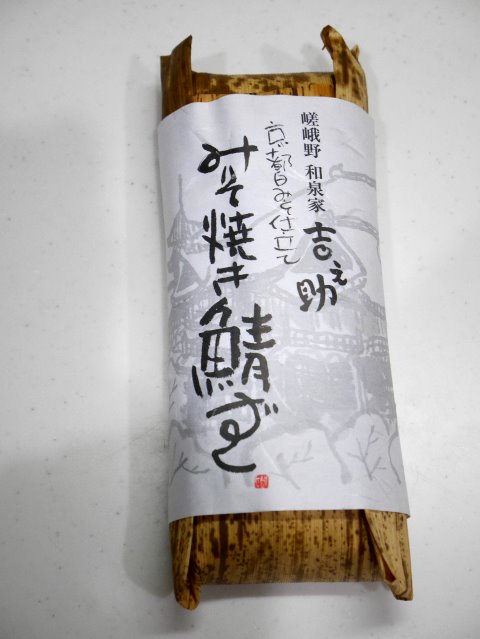 嵯峨野 和泉家
吉之助
京都白みそ仕立て
みそ焼き鯖ずし